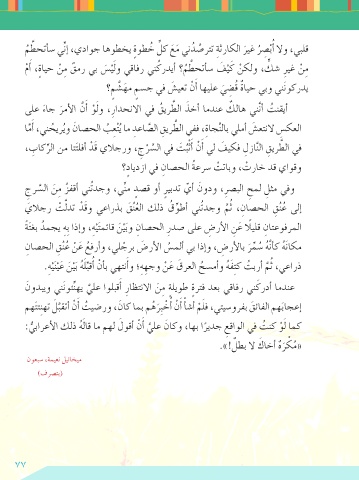 قلبي، ولا أُبْصِرُ غيرَ الكارثَةِ تتربَّصُ لي مَعَ كلِّ خُطوةٍ يخطوها جوادي، إنّي سأتحطَّمُ
مِنْ غيرِ شكٍّ، ولكنْ كَيْفَ سأتحطَّمُ؟ أيدركُني رفاقي وَلَيْسَ بي رمقٌ مِنْ حياةٍ، أَمْ
يدركونَني وبي حياةٌ قُضيَ عليها أَنْ تعيشَ في جسمٍ مهشَّمٍ؟
أيقنتُ أنّني هالكٌ عندما أخذَ الطَّريقُ في الانحدارِ، وَلَوْ أنَّ الأمرَ جاءَ على
العكسِ لانتعشَ أملي بالنَّجاةِ، ففي الطَّريقِ الصّاعدِ ما يُتْعِبُ الحصانَ ويُريحُني، أمَّا
في الطَّريقِ النّازلِ فكيفَ لي أَنْ أَثْبُتَ في السَّرْجِ، ورجلايَ قَدْ أفلتَتا من الرِّكابِ،
وقوايَ قد خارتْ، وباتَتْ سرعةُ الحصانِ في ازديادٍ؟
وفي مثلِ لمحِ البصرِ، ودونَ أيِّ تدبيرٍ أو قصدٍ منّي، وجدتُني أقفزُ مِنَ السَّرجِ
إلى عُنُقِ الحصانِ، ثُمَّ وجدتُني أطوِّقُ ذلك العُنُقَ بذراعي وقَدْ تدلَّتْ رجلايَ
المرفوعتانِ قليلًا عَنِ الأرضِ على صدرِ الحصانِ وبَيْنَ قائمتَيْهِ، وإذا بِهِ يجمدُ بغتةً
مكانَهُ كأنَّهُ سُمِّرَ بالأرضِ، وإذا بي ألمسُ الأرضَ برجْلي، وأرفعُ عَنْ عُنُقِ الحصانِ
ذراعي، ثُمَّ أربتُ كتِفَهُ وأمسحُ العرقَ عَنْ وجهِهِ؛ وأَنتهي بأَنْ أُقبِّلَهُ بَيْنَ عَيْنَيْهِ.
عندما أدركَني رفاقي بعدَ فترةٍ طويلةٍ مِنَ الانتظارِ أقبلوا عليَّ يهنِّئونَني ويبدونَ
إعجابَهم الفائقَ بفروسيتي، فلَمْ أشأْ أَنْ أُخْبِرَهُم بما كانَ، ورضيتُ أَنْ أتقبَّلَ تهنئتَهم
كما لَوْ كنتُ في الواقعِ جديرًا بها، وكانَ عليَّ أَنْ أقولَ لهم ما قالَهُ ذلك الأعرابيُّ:
«مُكْرَهٌ أخاكَ لا بطلٌ!».
ميخائيل نعيمة، سبعون
(بتصرف)
٧٧